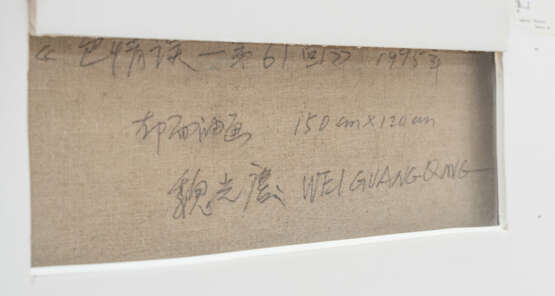 《色情误—第61回》 1995年
布面油画 150cm×120cm
魏光庆 WEI GUANG QING